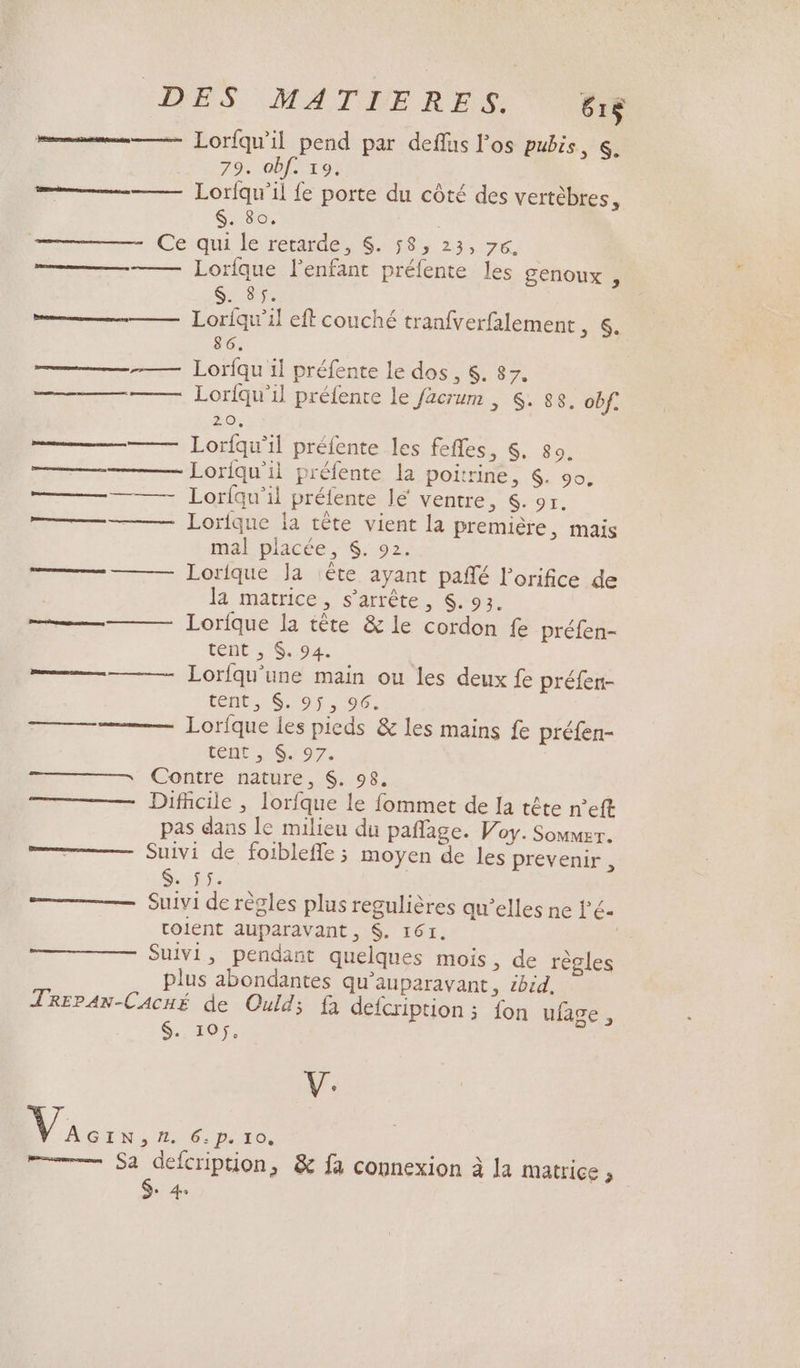 DES MATIERES. 615
—— Lorſqu'il pend par deſſus l'os pubis, §.
79. obſ. 19.
—— Lorſqu'il ſe porte du côté des vertèbres,
§. 80.
—— Ce qui le retarde, §. 58, 23, 76.
—— Lorſque l'enfant préſente les genoux,
§. 85.
—— Lorſqu'il eſt couché tranſverſalement, §.
86.
—— Lorſqu'il préſente le dos, §. 87.
—— Lorſqu'il préſente le ſacrum, §. 88. obſ.
20.
—— Lorſqu'il préſente les feſſes, §. 89.
—— Lorſqu'il préſente la poitrine, §. 90.
—— Lorſqu'il préſente le ventre, §. 91.
—— Lorſque la tête vient la première, mais
mal placée, §. 92.
—— Lorſque la tête ayant paſſé l'orifice de
la matrice, s'arrête, §. 93.
—— Lorſque la tête & le cordon ſe préſen-
tent, §. 94.
—— Lorſqu'une main ou les deux ſe préſen-
tent, §. 95, 96.
—— Lorſque les pieds & les mains ſe préſen-
tent, §. 97.
—— Contre nature, §. 98.
—— Difficile, lorſque le ſommet de la tête n'eſt
pas dans le milieu du paſſage. Voy. SOMMET.
—— Suivi de foibleſſe; moyen de les prevenir,
§. 55.
—— Suivi de règles plus regulières qu'elles ne l'é-
toient auparavant, §. 161.
—— Suivi, pendant quelques mois, de règles
plus abondantes qu'auparavant, ibid.
TREPAN-CACHÉ de Ould; ſa deſcription; ſon uſage,
§. 105.
V.
VAGIN, n. 6. p. 10.
—— Sa deſcription, & ſa connexion à la matrice,
§. 4.